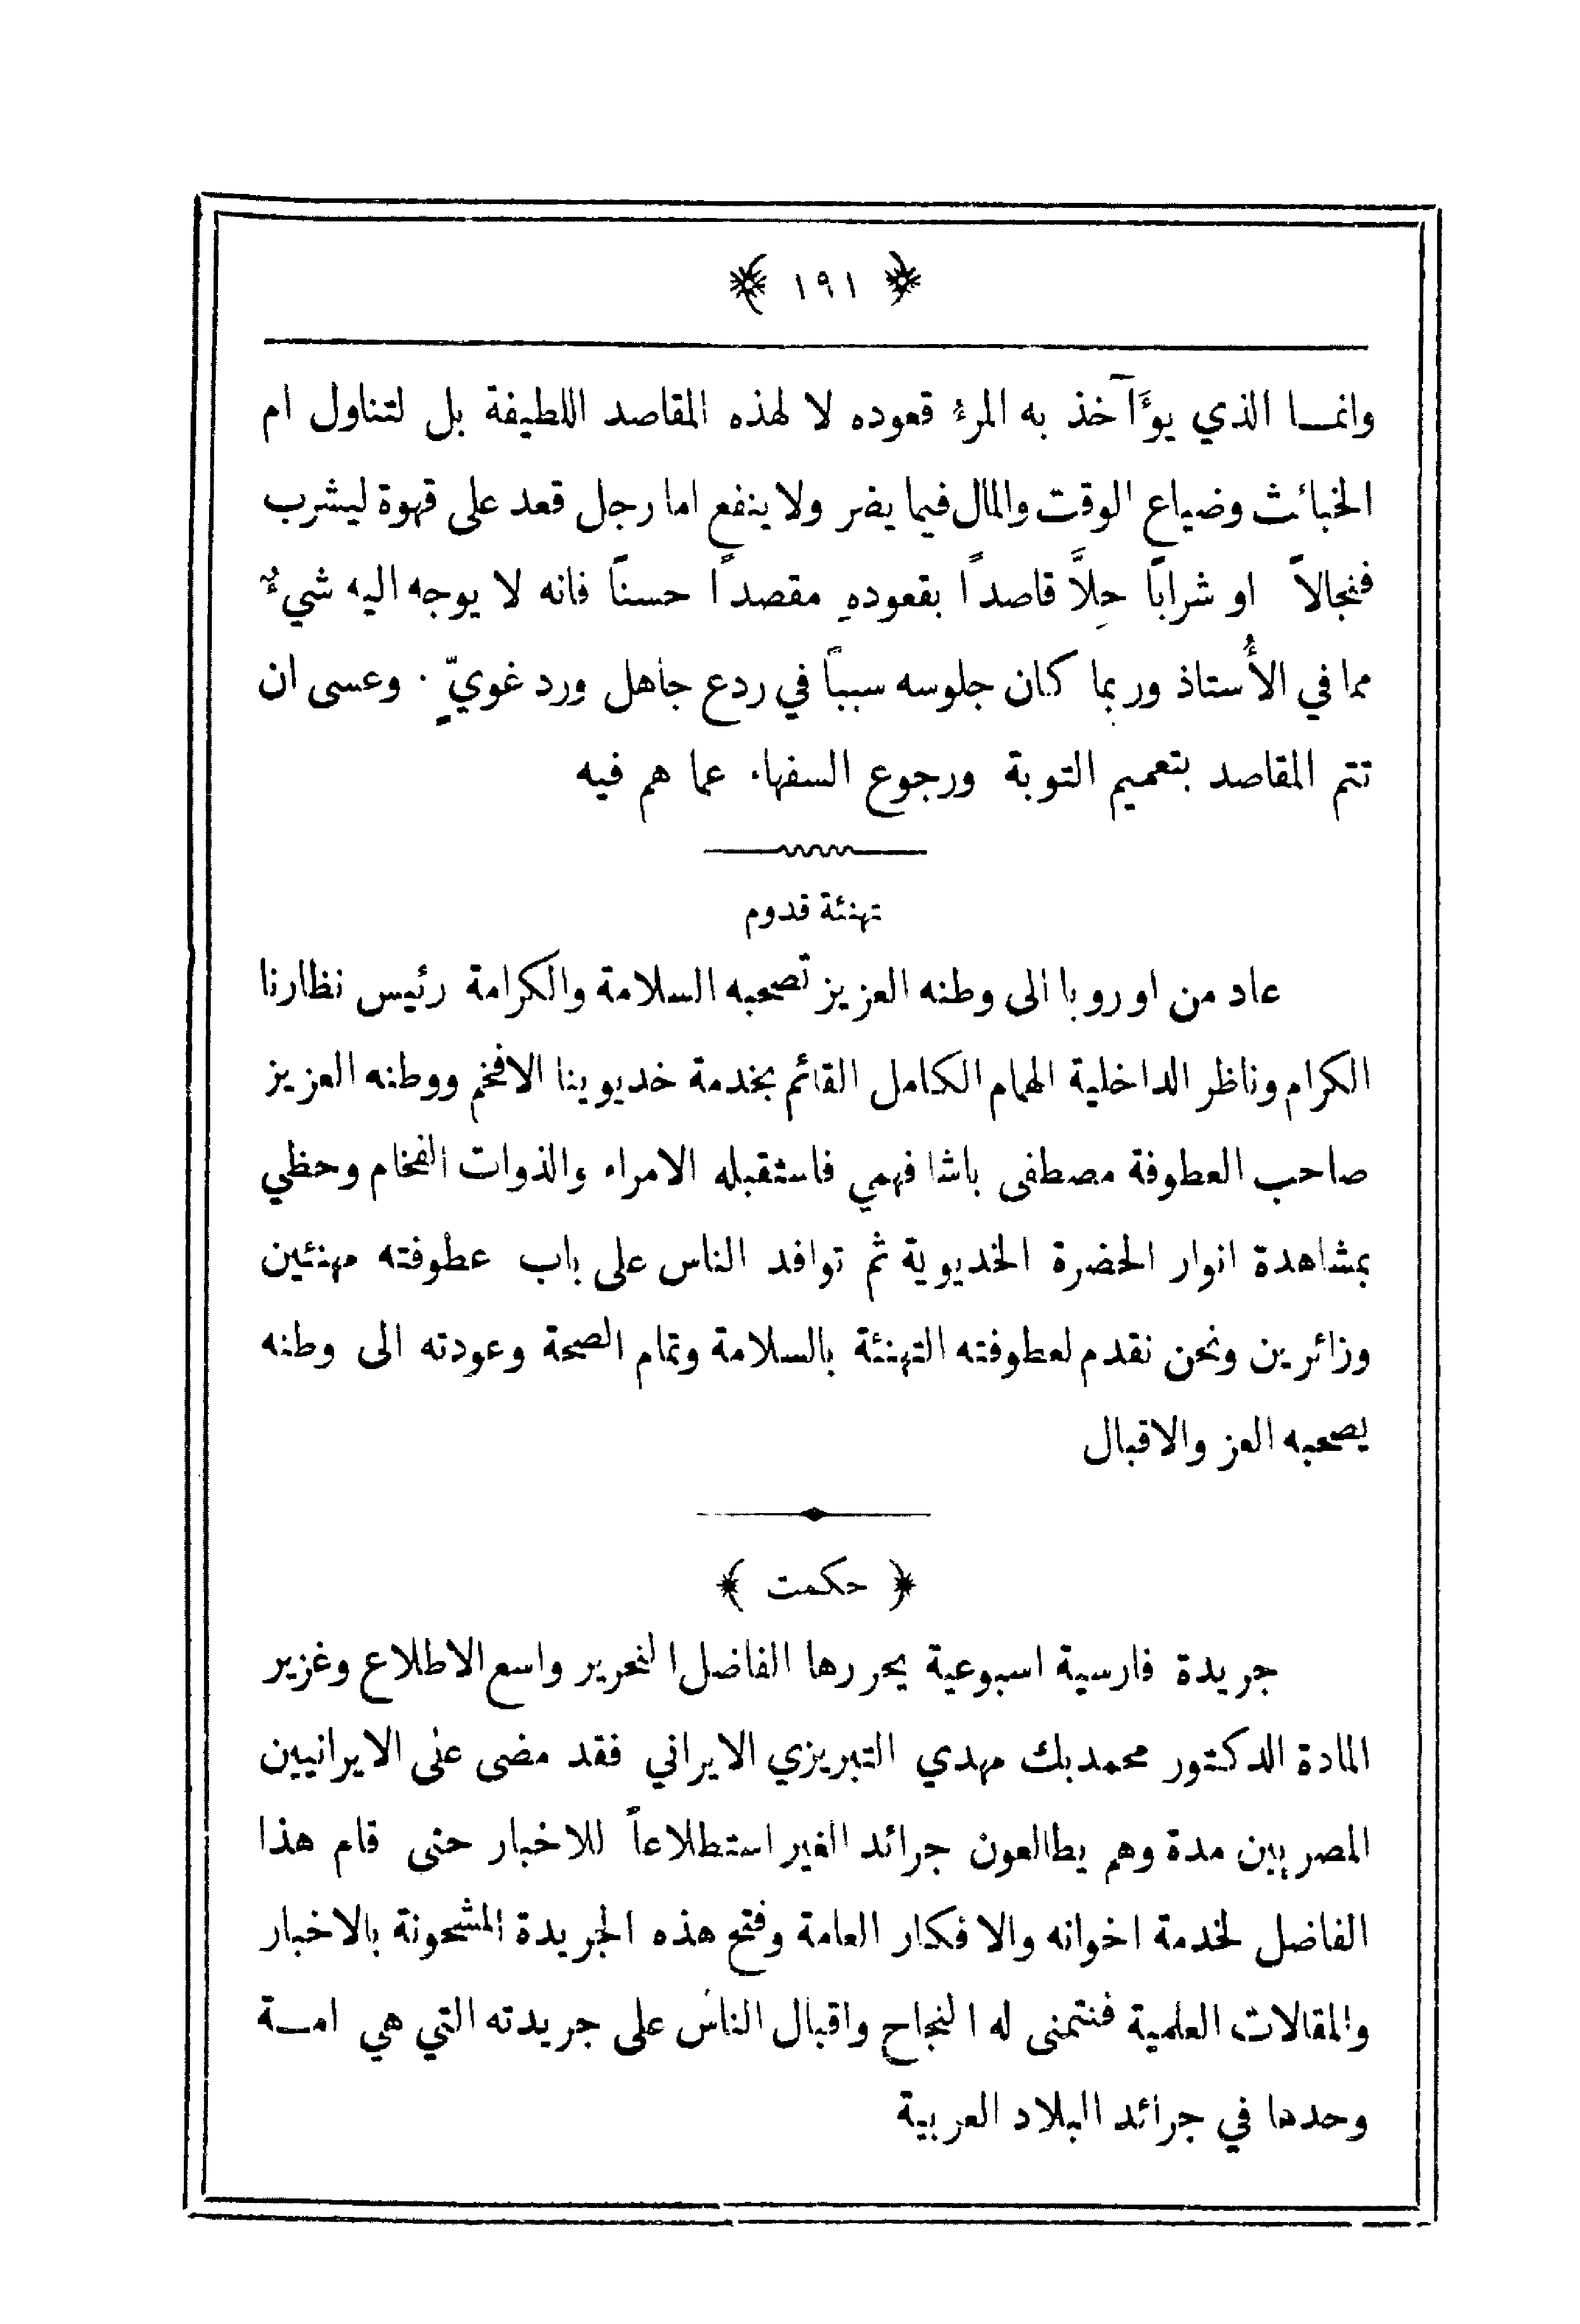 ﴿ ١٩١ ﴾
وانمـا الذي يؤَآخذ به المرءُ قعوده لا لهذه المقاصد اللطيفة بل لتناول ام
الخبائث وضياع الوقت والمال فيما يضر ولا ينفع اما رجل قعد على قهوة ليشرب
فنجالاً او شراباً حِلاًّ قاصداً بقعودهِ مقصداً حسناً فانه لا يوجه اليه شيءٌ
مما في الأُستاذ وربما كان جلوسه سبباً في ردع جاهل ورد غويٍّ . وعسى ان
تتم المقاصد بتعميم التوبة ورجوع السفهاء عما هم فيه
تهنئة قدوم
عاد من اوروبا الى وطنه العزيز تصحبه السلامة والكرامة رئيس نظارنا
الكرام وناظر الداخلية الهمام الكامل القائم بخدمة خديوينا الافخم ووطنه العزيز
صاحب العطوفة مصطفى باشا فهمي فاستقبله الامراء والذوات الفخام وحظي
بمشاهدة انوار الحضرة الخديوية ثم توافد الناس على باب عطوفته مهنئين
وزائرين ونحن نقدم لعطوفته التهنئة بالسلامة وتمام الصحة وعودته الى وطنه
يصحبه العز والاقبال
﴿ حكمت ﴾
جريدة فارسية اسبوعية يحررها الفاضل النحرير واسع الاطلاع وغزير
المادة الدكتور محمد بك مهدي التبريزي الايراني فقد مضى على الايرانيين
المصريين مدة وهم يطالعون جرائد الغير استطلاعاً للاخبار حتى قام هذا
الفاضل لخدمة اخوانه والافكار العامة وفتح هذه الجريدة المشحونة بالاخبار
والمقالات العلمية فنتمنى له النجاح واقبال الناس على جريدته التي هي امـة
وحدها في جرائد البلاد العربية